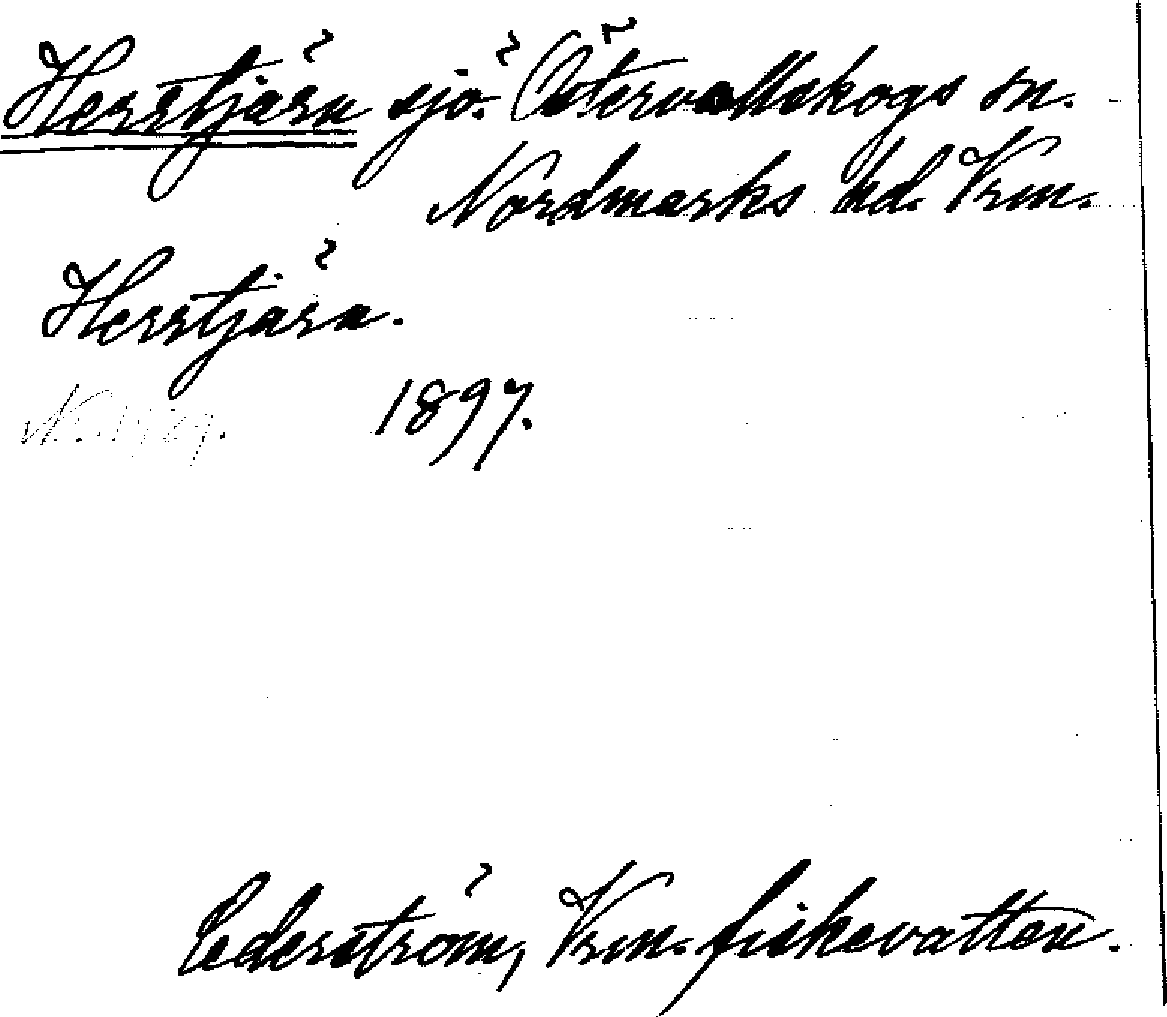 Herrtjärn sjö. Östervallskogs sn.
Nordmarks hd. Vrm.
Herrtjärn.
1897.
Cederström, Vrm. fiskevatten.